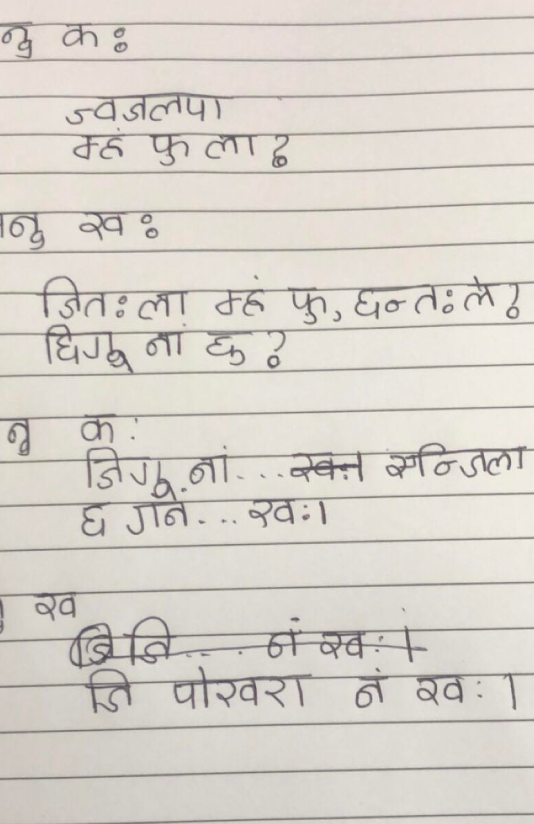 नु कः
ज्वजलपा
म्हं फु ला?
नु खः
जितः ला म्हं फु, छन्तः ले?
छिगू नां छु?
नु कः
जिगू नां... सन्जिला
छ गनं... खः।
ख
जि जि.... नं खः।
जि पोखरा नं खः।